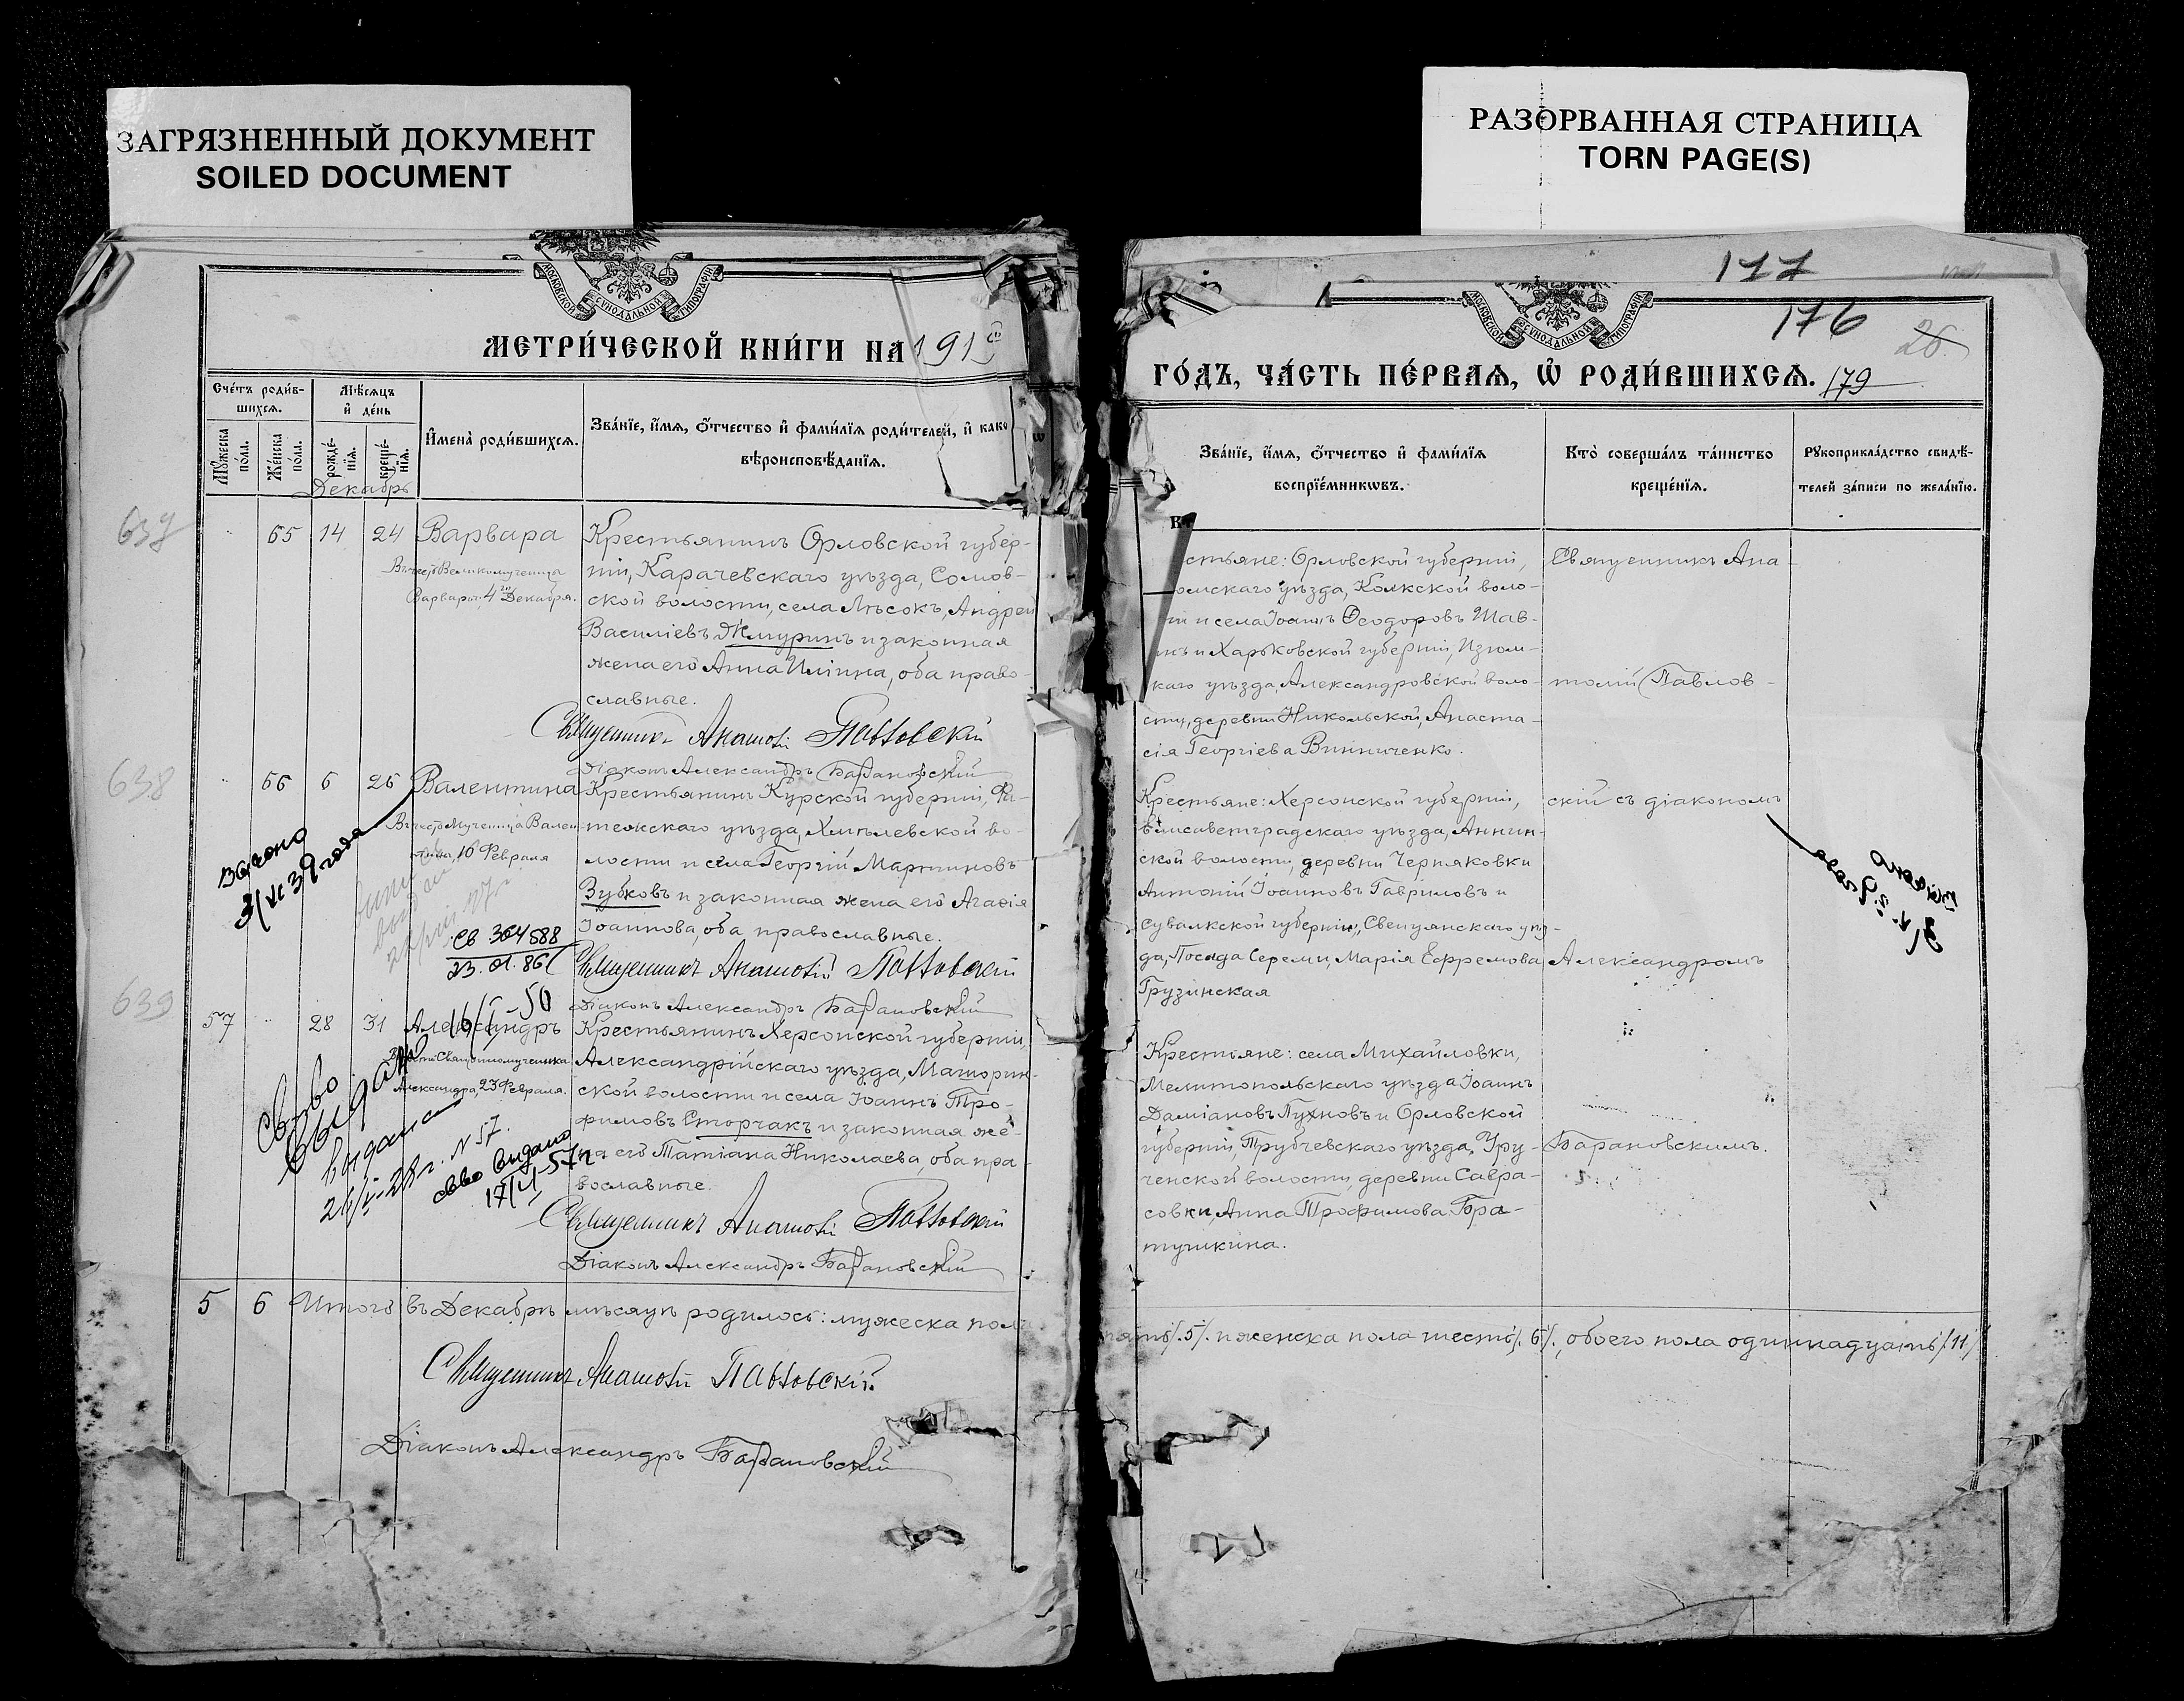 ЗАГРЯЗНЕННЫЙ ДОКУМЕНТ
SOILED DOCUMENT
РАЗОРВАННАЯ СТРАНИЦА
TORN PAGE(S)
МОСКОВСКОЙ СѴНОДАЛЬНОЙ ТИПОГРАФІИ
МЕТРИ́ЧЕСКОЙ КНИ́ГИ НА 191
Сче́тъ роди́в-
шихсѧ.
Мѣ́сѧцъ
и҆ де́нь
Мꙋ́жеска
по́ла.
Же́нска
по́ла.
рожде́-
нїѧ.
креще́-
нїѧ.
И҆мена̀ роди́вшихсѧ.
Зва́нїе, и҆́мѧ, ѻ҆́тчество и҆ фами́лїѧ роди́телей, и҆ како
вѣроисповѣ́данїѧ.
Декабрь
637
65 14 24 Варвара
Въ честь Великомученицы
Варвары, 4 Декабря.
Крестьянинъ Орловской губер-
ніи, Карачевскаго уѣзда, Сомов-
ской волости, села Лѣсокъ, Андрей
Василіевъ Жмуринъ и законная
жена его Анна Иліина, оба право-
славные.
Священникъ Анатолій Павловскій
Діаконъ Александръ Барановскій
638
66 6 26 Валентина
Въ честь Мученицы Вален-
тины, 10 Февраля
Крестьянинъ Курской губерніи, Фа-
тежскаго уѣзда, Хмѣлевской во-
лости и села Георгій Мартиновъ
Зубковъ и законная жена его Агаѳія
Іоаннова, оба православные.
Священникъ Анатолій Павловскій
Діаконъ Александръ Барановскій
39 года
св 364588
23.01.86
16/I-50
639
57 28 31 Александръ
Въ честь Священномученика
Александра, 23 Февраля.
Крестьянинъ Херсонской губерніи,
Александрійскаго уѣзда, Машорин-
ской волости и села Іоаннъ Тро-
фимовъ Сторчакъ и законная же-
на его Татіана Николаева, оба пра-
вославные.
Священникъ Анатолій Павловскій
Діаконъ Александръ Барановскій
Св-во
выдана
28 г. N 57.
свво выдано
5 6 Итого въ Декабрѣ мѣсяцѣ родилось: мужеска пола
Священникъ Анатолій Павловскій
Діаконъ Александръ Барановскій
177
176
26
МОСКОВСКОЙ СѴНОДАЛЬНОЙ ТИПОГРАФІИ
ГО́ДЪ, ЧА́СТЬ ПЕ́РВАѦ, Ѡ҆ РОДИ́ВШИХСѦ. 179
Зва́нїе, и҆́мѧ, ѻ҆́тчество и҆ фами́лїѧ
воспрїе́мникѡвъ.
Кто̀ соверша́лъ та́инство
креще́нїѧ.
Рꙋкоприкла́дство свидѣ́-
телей за́писи по жела́нїю.
стьяне: Орловской губерніи,
омскаго уѣзда, Колкской воло-
и села Іоаннъ Ѳеодоровъ Шав-
и Харьковской губерніи, Изюм-
каго уѣзда, Александровской воло-
сти, деревни Никольской, Анаста-
сія Георгіева Винниченко.
Священникъ Ана
толій Павлов-
Крестьяне: Херсонской губерніи,
Елисаветградскаго уѣзда, Аннин-
ской волости, деревни Черняковки
Антоній Іоанновъ Гавриловъ и
Сувалкской губерніи, Свенцянскаго уѣз-
да, Посада Середи, Марія Ефремова
Грузинская
скій съ діакономъ
Александромъ
Крестьяне: села Михайловки,
Мелитопольскаго уѣзда Іоаннъ
Даміановъ Пухновъ и Орловской
губерніи, Трубчевскаго уѣзда, Уру-
ченской волости, деревни Савра-
совки, Анна Трофимова Бра-
тушкина.
Барановскимъ.
пять/.5/. и женска пола шесть/. 6/., обоего пола одиннадцать/.11/.